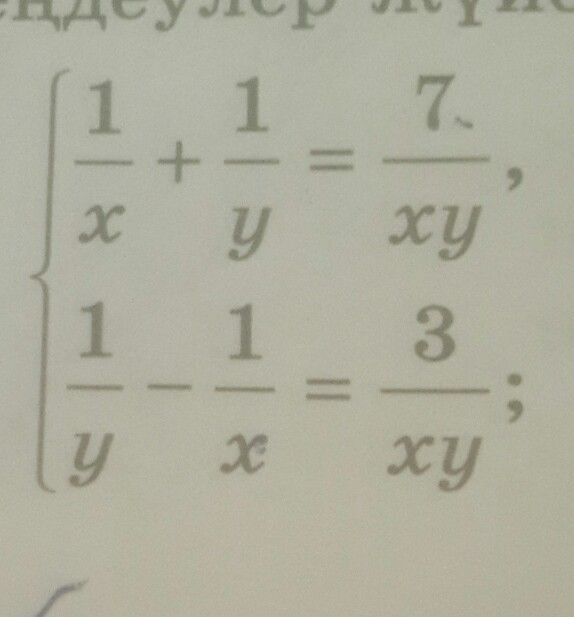 1/x + 1/y = 7/xy,
1/y - 1/x = 3/xy;